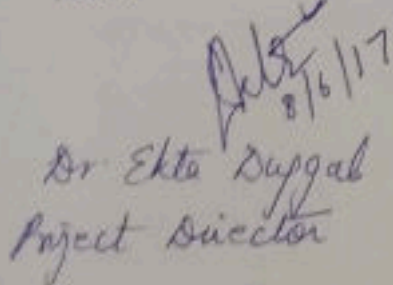 8/6/17
Dr Ekta Duggal
Project Director